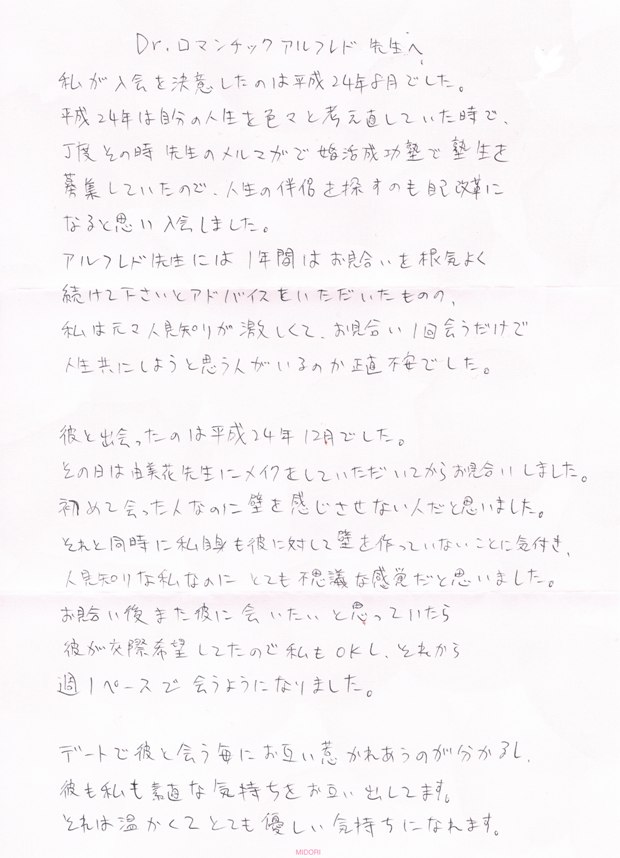 Dr.ロマンチックアルフレド先生へ
私が入会を決意したのは平成24年8月でした。
平成24年は自分の人生を色々と考え直していた時で、
丁度その時先生のメルマガで婚活成功塾で塾生を
募集していたので、人生の伴侶を探すのも自己改革に
なると思い入会しました。
アルフレド先生には1年間はお見合いを根気よく
続けて下さいとアドバイスをいただいたものの、
私は元々人見知りが激しくて、お見合い1回会うだけで
人生共にしようと思う人がいるのか正直不安でした。
彼と出会ったのは平成24年12月でした。
その日は由美花先生にメイクをしていただいてからお見合いしました。
初めて会った人なのに壁を感じさせない人だと思いました。
それと同時に私自身も彼に対して壁を作っていないことに気付き、
人見知りな私なのにとても不思議な感覚だと思いました。
お見合い後また彼に会いたいと思っていたら
彼が交際希望してたので私もOKし、それから
週1ペースで会うようになりました。
デートで彼と会う毎にお互い惹かれあうのが分かるし、
彼も私も素直な気持ちをお互い出してます。
それは温かくてとても優しい気持ちになれます。
MIDORI